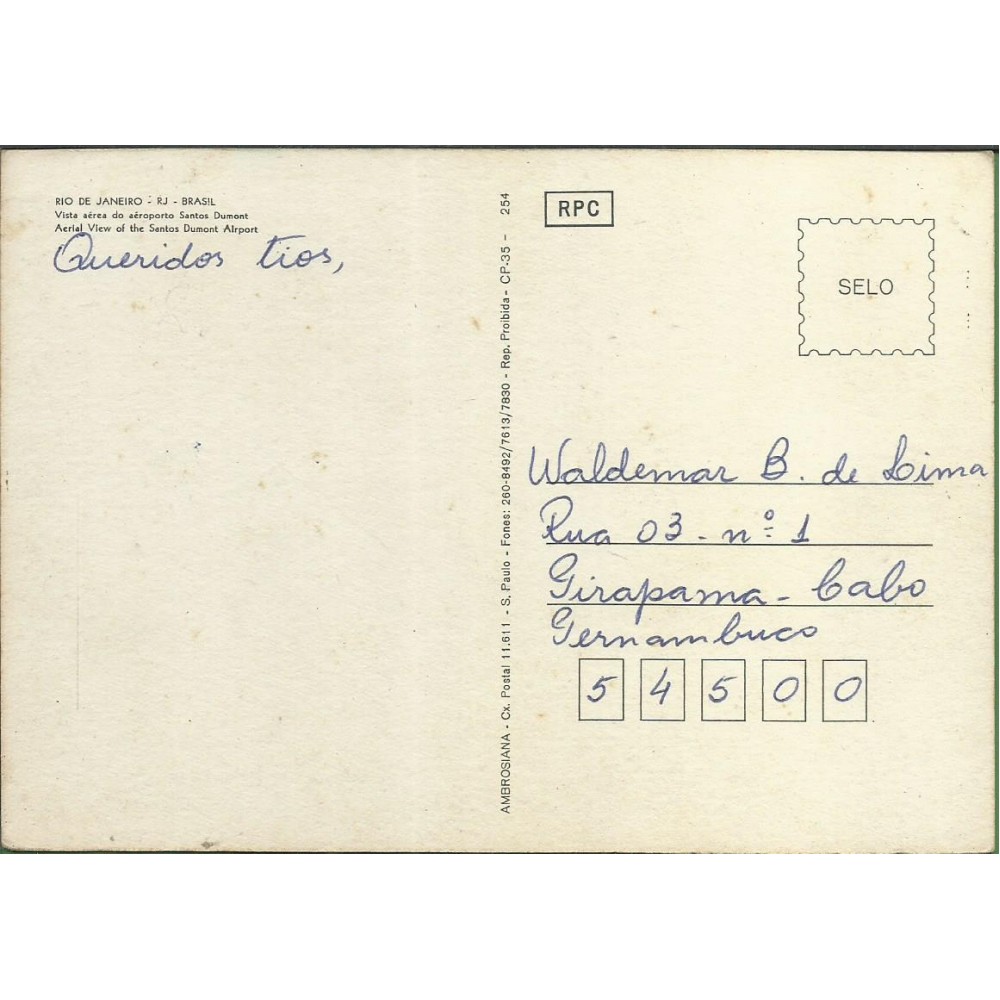 RIO DE JANEIRO - RJ - BRASIL
Vista aérea do aéroporto Santos Dumont
Aerial View of the Santos Dumont Airport
Queridos tios,
AMBROSIANA - Cx. Postal 11.611 - S. Paulo - Fones: 260-8492/7613/7830 - Rep. Proibida - CP-35 - 254
RPC
SELO
Waldemar B. de Lima
Rua 03 - nº 1
Girapama - Cabo
Pernambuco
5 4 5 0 0